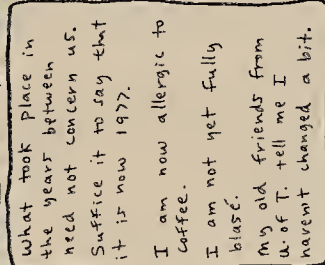 what took place in
the years between
need not concern us.
Suffice it to say that
it is now 1977.
I am now allergic to
coffee.
I am not yet fully
blasé.
my old friends from
U. of T. tell me I
haven't changed a bit.